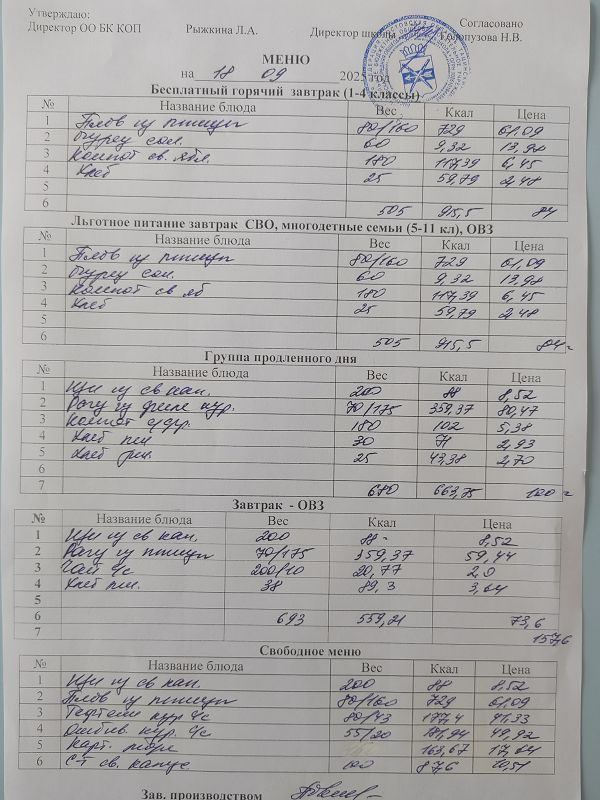 Утверждаю:
Согласовано
Директор ОО БК КОП Рыжкина Л.А. Директор школы Голопузова Н.В.
МЕНЮ
на 18 09 2025 год
Бесплатный горячий завтрак (1-4 классы)
№ Название блюда Вес Ккал Цена
1 Плов из птицы 80/160 729 61,09
2 Огурец сол. 60 9,32 13,98
3 Компот св. ябл. 180 117,39 6,45
4 Хлеб 25 59,79 2,48
5
6 505 915,5 84
Льготное питание завтрак СВО, многодетные семьи (5-11 кл), ОВЗ
№ Название блюда Вес Ккал Цена
1 Плов из птицы 80/160 729 61,09
2 Огурец сол. 60 9,32 13,98
3 Компот св яб 180 117,39 6,45
4 Хлеб 25 59,79 2,48
5
6 505 915,5 84=
Группа продленного дня
№ Название блюда Вес Ккал Цена
1 Щи из св кап. 200 88 8,52
2 Рагу из филе кур. 70/175 359,37 80,47
3 Компот с/фр. 180 102 5,38
4 Хлеб пш 30 71 2,93
5 Хлеб рж. 25 43,38 2,70
6
7 680 663,75 100=
Завтрак - ОВЗ
№ Название блюда Вес Ккал Цена
1 Щи из св кап. 200 88- 8,52
2 Рагу из птицы 70/175 359,37 59,44
3 Чай с/с 200/10 20,77 2,0
4 Хлеб пш. 38 89,3 3,64
5
6 693 559,21 73,6
7 157,6
Свободное меню
№ Название блюда Вес Ккал Цена
1 Щи из св кап. 200 88 8,52
2 Плов из птицы 80/160 729 61,09
3 Тефтели кур. с/с 80/43 177,4 41,33
4 Отбив. кур. с/с 55/20 181,94 49,92
5 Карт. пюре 163,67 17,64
6 С-т св. капус 100 87,6 10,51
Зав. производством